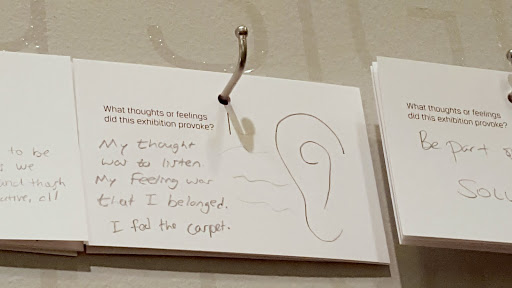 to be
we
What thoughts or feelings
did this exhibition provoke?
My thought
was to listen.
My feeling was
that I belonged.
I the carpet.
What thoughts or feelings
did this exhibition provoke?
Be part